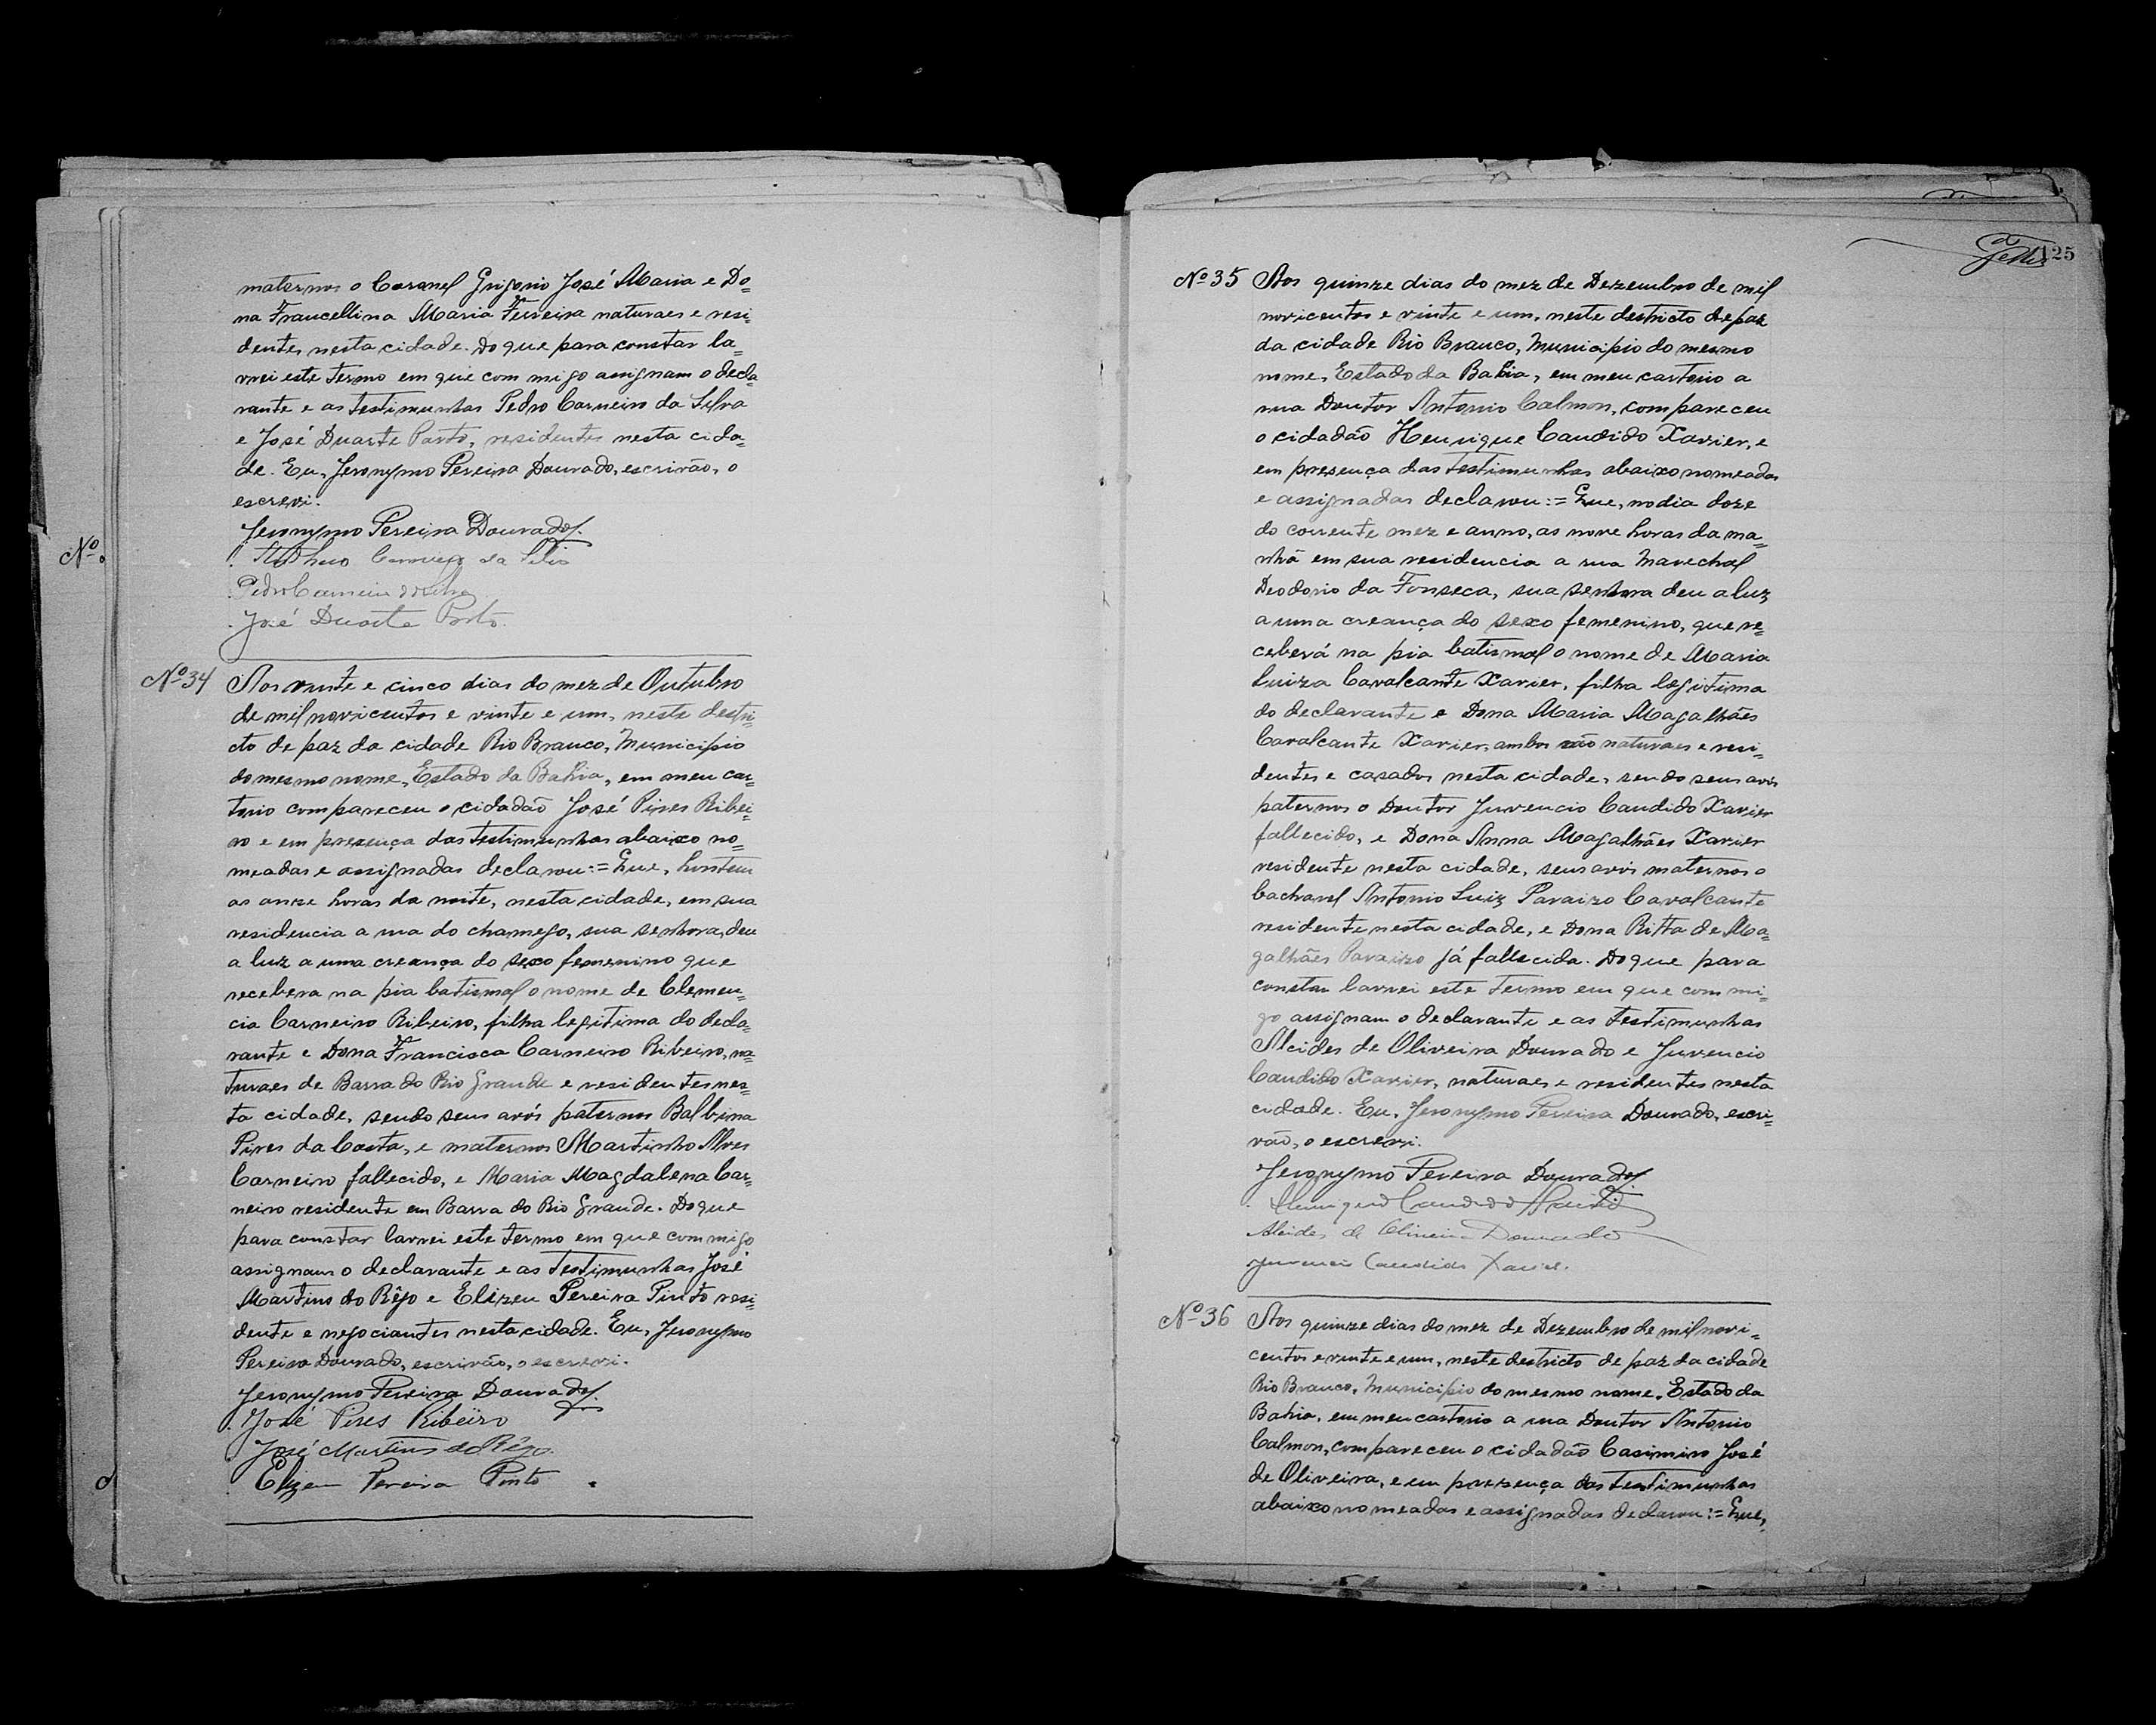 maternos o Coronel Grigorio José Maria e Do=
na Francellina Maria Ferreira naturaes e resi=
dentes nesta cidade. Do que para constar la=
vrei este termo em que com migo assignam o decla=
rante e as testimunhas Pedro Carneiro da Silva
e José Duarte Porto, residentes nesta cida=
de. Eu, Jeronymo Pereira Dourado, escrivão, o
escrevi.
Jeronymo Pereira Dourado.
Carneiro da Silva
Pedro Carneiro da Silva
José Duarte Porto.
Nº
Nº 34 Aos vinte e cinco dias do mez de Outubro
de mil novicentos e vinte e um, neste destri=
cto de paz da cidade Rio Branco, Municipio
do mesmo nome, Estado da Bahia, em meu car=
torio compareceu o cidadão José Pires Ribei=
ro e em presença das testimunhas abaixo no=
meadas e assignadas declarou:= Que, hontem
as onze horas da noite, nesta cidade, em sua
residencia a rua do chamego, sua senhora, deu
a luz a uma creança do sexo femenino que
recebera na pia batismal o nome de Clemen=
cia Carneiro Ribeiro, filha legitima do decla=
rante e Dona Francisca Carneiro Ribeiro, na=
turaes de Barra do Rio Grande e residentes nes=
ta cidade, sendo seus avós paternos Balbina
Pires da Costa, e maternos Martinho Alves
Carneiro fallecido, e Maria Magdalena Car=
neiro residente em Barra do Rio Grande. Do que
para constar lavrei este termo em que com migo
assignam o declarante e as testimunhas José
Martins do Rêgo e Elizeu Pereira Pinto resi=
dente e negociantes nesta cidade. Eu, Jeronymo
Pereira Dourado, escrivão, o escrevi.
Jeronymo Pereira Dourado.
José Pires Ribeiro
José Martins do Rêgo.
Elizeu Pereira Pinto
125
Nº 35 Aos quinze dias do mez de Dezembro de mil
novicentos e vinte e um, neste destricto de paz
da cidade Rio Branco, Municipio do mesmo
nome, Estado da Bahia, em meu cartorio a
rua Doutor Antonio Calmon, compareceu
o cidadão Henrique Candido Xavier, e
em presença das testimunhas abaixo nomeadas
e assignadas declarou:= Que, no dia doze
do corrente mez e anno, as nove horas da ma=
nhã em sua residencia a rua Marechal
Deodorio da Fonseca, sua senhora deu a luz
a uma creança do sexo femenino, que re=
ceberá na pia batismal o nome de Maria
Luiza Cavalcante Xavier, filha legitima
do declarante e Dona Maria Magalhães
Cavalcante Xavier, ambos são naturaes e resi=
dentes e casados nesta cidade, sendo seus avós
paternos o Doutor Juvencio Candido Xavier
fallecido, e Dona Anna Magalhães Xavier
residente nesta cidade, seus avós maternos o
bacharel Antonio Luiz Paraizo Cavalcante
residente nesta cidade, e Dona Ritta de Ma=
galhães Paraizo já fallecida. Do que para
constar lavrei este termo em que com mi=
go assignam o declarante e as testimunhas
Alcides de Oliveira Dourado e Juvencio
Candido Xavier, naturaes e residentes nesta
cidade. Eu, Jeronymo Pereira Dourado, escri=
vão, o escrevi.
Jeronymo Pereira Dourado.
Henrique Candido Xavier
Alcides de Oliveira Dourado
Juvencio Candido Xavier.
Nº 36 Aos quinze dias do mez de Dezembro de mil novi=
centos e vinte e um, neste destricto de paz da cidade
Rio Branco, Municipio do mesmo nome, Estado da
Bahia, em meu cartorio a rua Doutor Antonio
Calmon, compareceu o cidadão Casimiro José
de Oliveira, e em presença das testimunhas
abaixo nomeadas e assignadas declarou:= Que,